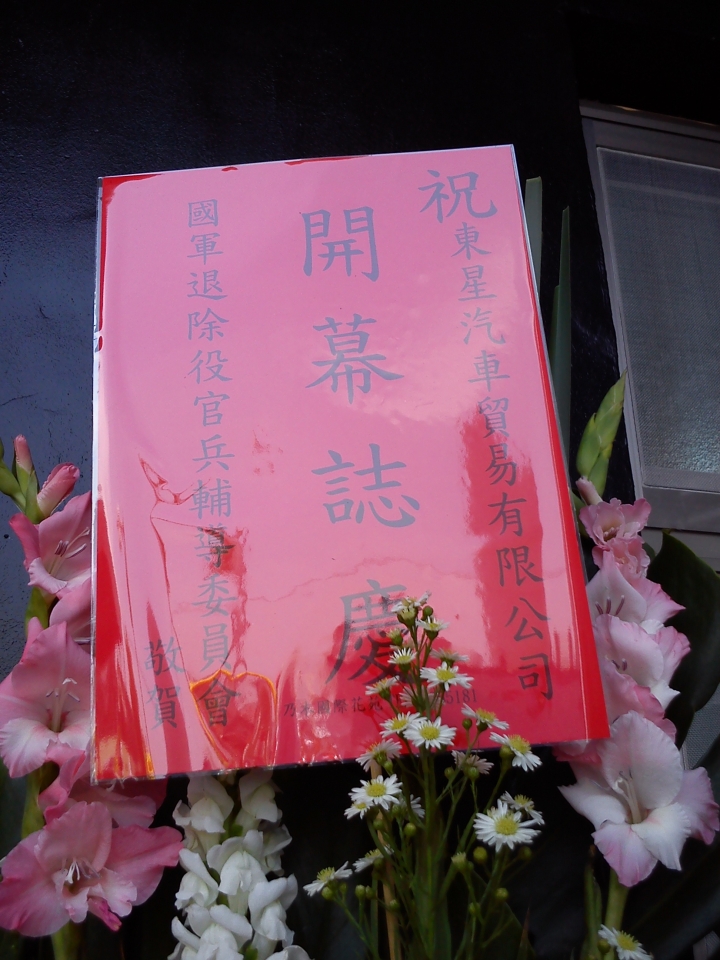 祝東星汽車貿易有限公司
開幕誌慶
國軍退除役官兵輔導委員會
敬賀